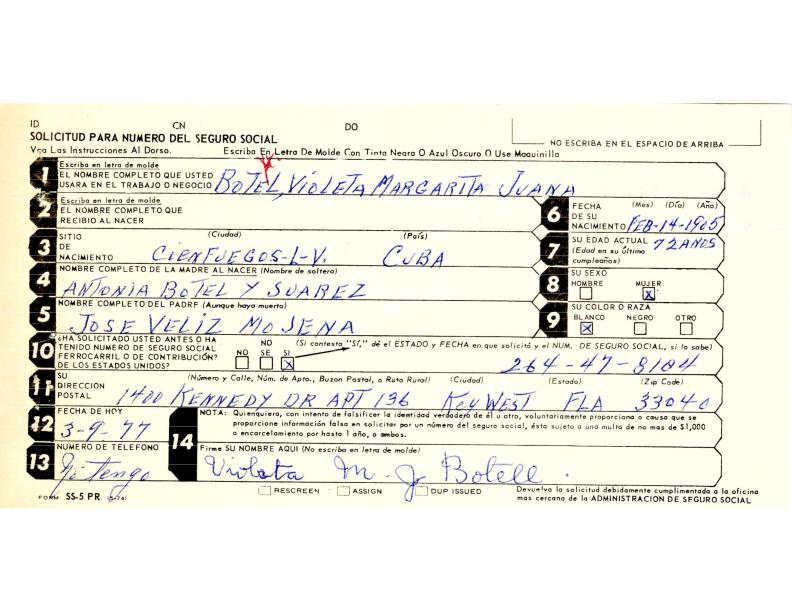 ID CN DO
SOLICITUD PARA NUMERO DEL SEGURO SOCIAL
NO ESCRIBA EN EL ESPACIO DE ARRIBA
Vea Las Instrucciones Al Dorso. Escriba En Letra De Molde Con Tinta Negra O Azul Oscuro O Use Maquinilla
1 Escriba en letra de molde
EL NOMBRE COMPLETO QUE USTED
USARA EN EL TRABAJO O NEGOCIO BOTEL, VIOLETA MARGARITA JUANA
2 Escriba en letra de molde
EL NOMBRE COMPLETO QUE
RECIBIO AL NACER
6 FECHA DE SU NACIMIENTO (Mes) (Día) (Año)
FEB-14-1905
3 SITIO DE NACIMIENTO (Ciudad) (País)
CIENFUEGOS-L-V. CUBA
7 SU EDAD ACTUAL 72 AÑOS
(Edad en su último
cumpleaños)
4 NOMBRE COMPLETO DE LA MADRE AL NACER (Nombre de soltera)
ANTONIA BOTEL Y SUAREZ
8 SU SEXO
HOMBRE MUJER
X
5 NOMBRE COMPLETO DEL PADRE (Aunque haya muerto)
JOSE VELIZ MOJENA
9 SU COLOR O RAZA
BLANCO NEGRO OTRO
X
10 ¿HA SOLICITADO USTED ANTES O HA
TENIDO NUMERO DE SEGURO SOCIAL
FERROCARRIL O DE CONTRIBUCIÓN?
DE LOS ESTADOS UNIDOS?
NO
NO SE SI
X
(Si contesta "SÍ," dé el ESTADO y FECHA en que solicitó y el NUM. DE SEGURO SOCIAL, si lo sabe)
264-47-8184
11 SU DIRECCION POSTAL (Número y Calle, Núm. de Apto., Buzon Postal, o Ruta Rural) (Ciudad) (Estado) (Zip Code)
1400 KENNEDY DR APT 136 KEY WEST FLA 33040
12 FECHA DE HOY
3-9-77
14 NOTA: Quienquiera, con intento de falsificar la identidad verdadera de él u otro, voluntariamente proporciona o causa que se
proporcione información falsa en solicitar por un número del seguro social, ésta sujeto a una multa de no mas de $1,000
o encarcelamiento por hasta 1 año, o ambos.
13 NUMERO DE TELEFONO
No tengo
Firme SU NOMBRE AQUI (No escriba en letra de molde)
Violeta M. J. Botell.
FORM SS-5 PR (5-74)
RESCREEN ASSIGN DUP ISSUED
Devuelva la solicitud debidamente cumplimentada a la oficina
mas cercana de la ADMINISTRACION DE SEGURO SOCIAL